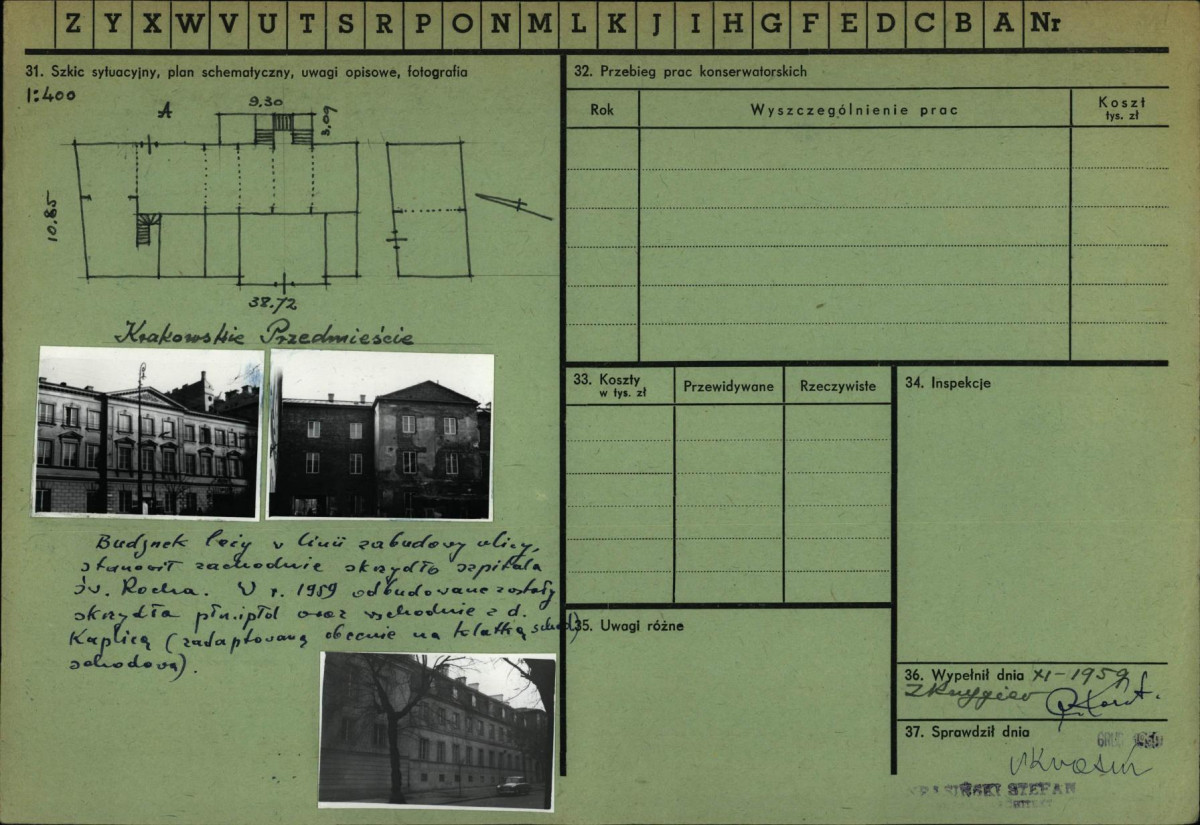 Z Y X W V U T S R P O N M L K J I H G F E D C B A Nr
31. Szkic sytuacyjny, plan schematyczny, uwagi opisowe, fotografia
1:400
A
9.30
3.09
10.85
38.72
Krakowskie Przedmieście
Budynek leży w linii zabudowy ulicy,
stanowił zachodnie skrzydło szpitala
św. Rocha. W r. 1959 odbudowane zostały
skrzydła płn. i płd oraz wschodnie z d.
Kaplicą (zadaptowaną obecnie na klatkę schod)
schodową).
32. Przebieg prac konserwatorskich
Rok
Wyszczególnienie prac
Koszt
tys. zł
33. Koszty
w tys. zł
Przewidywane
Rzeczywiste
34. Inspekcje
35. Uwagi różne
36. Wypełnił dnia XI-1959
37. Sprawdził dnia
STEFAN